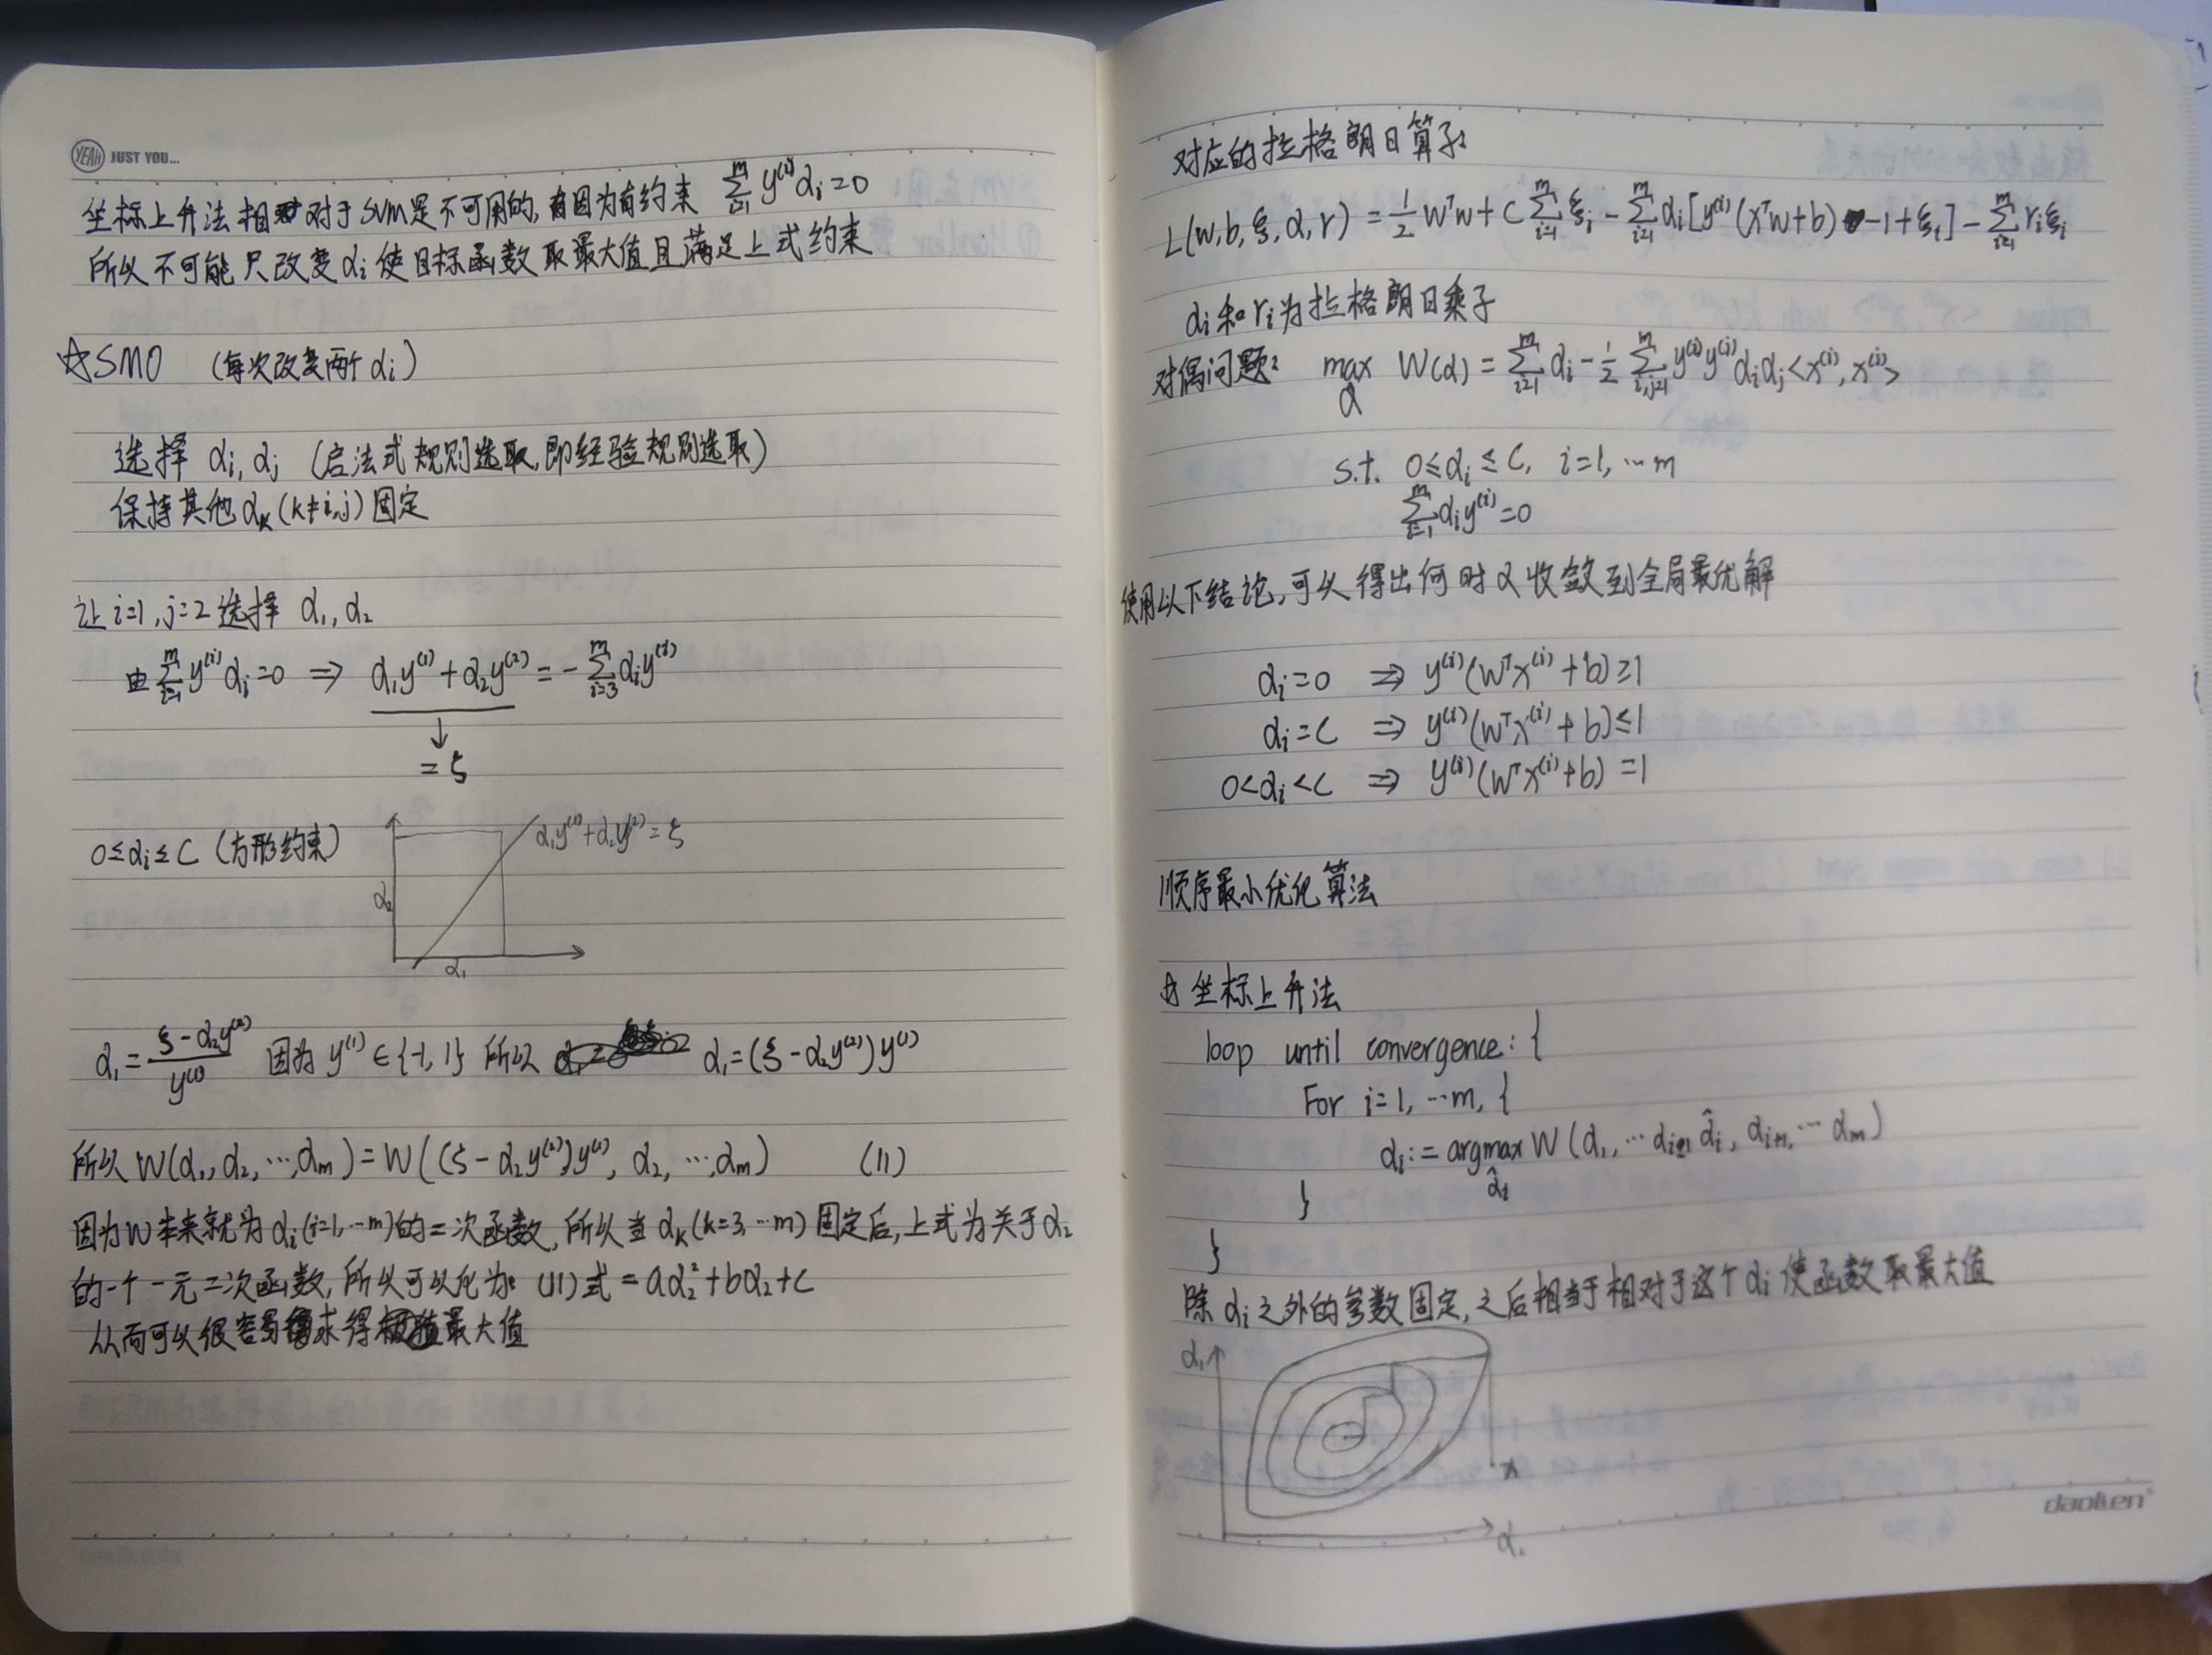 YEAH JUST YOU...
坐标上升法相对于SVM是不可用的,因为有约束 $\sum_{i=1}^{m} y^{(i)}\alpha_i=0$
所以不可能只改变 $\alpha_i$ 使目标函数取最大值且满足上式约束
☆SMO (每次改变两个 $\alpha_i$)
选择 $\alpha_i, \alpha_j$ (启法式规则选取,即经验规则选取)
保持其他 $\alpha_k (k\neq i,j)$ 固定
让 i=1, j=2 选择 $\alpha_1, \alpha_2$
由 $\sum_{i=1}^{m} y^{(i)}\alpha_i=0 \Rightarrow \alpha_1y^{(1)}+\alpha_2y^{(2)}=-\sum_{i=3}^{m}\alpha_iy^{(i)}$
↓
= ξ
$0\le\alpha_i\le C$ (方形约束)
$\alpha_1y^{(1)}+\alpha_2y^{(2)}=ξ$
$\alpha_2$
$\alpha_1$
$\alpha_1=\frac{ξ-\alpha_2y^{(2)}}{y^{(1)}}$ 因为 $y^{(1)}\in\{-1,1\}$ 所以 $\alpha_1=(ξ-\alpha_2y^{(2)})y^{(1)}$
所以 $W(\alpha_1,\alpha_2,\cdots,\alpha_m)=W((ξ-\alpha_2y^{(2)})y^{(1)},\alpha_2,\cdots,\alpha_m)$ (11)
因为W本来就为 $\alpha_i(i=1,\cdots m)$ 的二次函数,所以当 $\alpha_k(k=3,\cdots m)$ 固定后,上式为关于 $\alpha_2$
的一个一元二次函数,所以可以化为: (11)式 $=a\alpha_2^2+b\alpha_2+c$
从而可以很容易求得最大值
对应的拉格朗日算子:
$L(w,b,ξ,\alpha,r)=\frac{1}{2}w^Tw+C\sum_{i=1}^{m}ξ_i-\sum_{i=1}^{m}\alpha_i[y^{(i)}(x^Tw+b)-1+ξ_i]-\sum_{i=1}^{m}r_iξ_i$
$\alpha_i$ 和 $r_i$ 为拉格朗日乘子
对偶问题: $\max_{\alpha} W(\alpha)=\sum_{i=1}^{m}\alpha_i-\frac{1}{2}\sum_{i,j=1}^{m}y^{(i)}y^{(j)}\alpha_i\alpha_j<x^{(i)},x^{(j)}>$
s.t. $0\le\alpha_i\le C, i=1,\cdots m$
$\sum_{i=1}^{m}\alpha_iy^{(i)}=0$
使用以下结论,可以得出何时α收敛到全局最优解
$\alpha_i=0 \Rightarrow y^{(i)}(w^Tx^{(i)}+b)\ge1$
$\alpha_i=C \Rightarrow y^{(i)}(w^Tx^{(i)}+b)\le1$
$0<\alpha_i<C \Rightarrow y^{(i)}(w^Tx^{(i)}+b)=1$
顺序最小优化算法
☆ 坐标上升法
loop until convergence: {
For i=1, ⋯m, {
$\alpha_i:=\arg\max_{\hat{\alpha}_i} W(\alpha_1,\cdots\alpha_{i-1},\hat{\alpha}_i,\alpha_{i+1},\cdots\alpha_m)$
}
}
除 $\alpha_i$ 之外的参数固定,之后相当于相对于这个 $\alpha_i$ 使函数取最大值
daolen